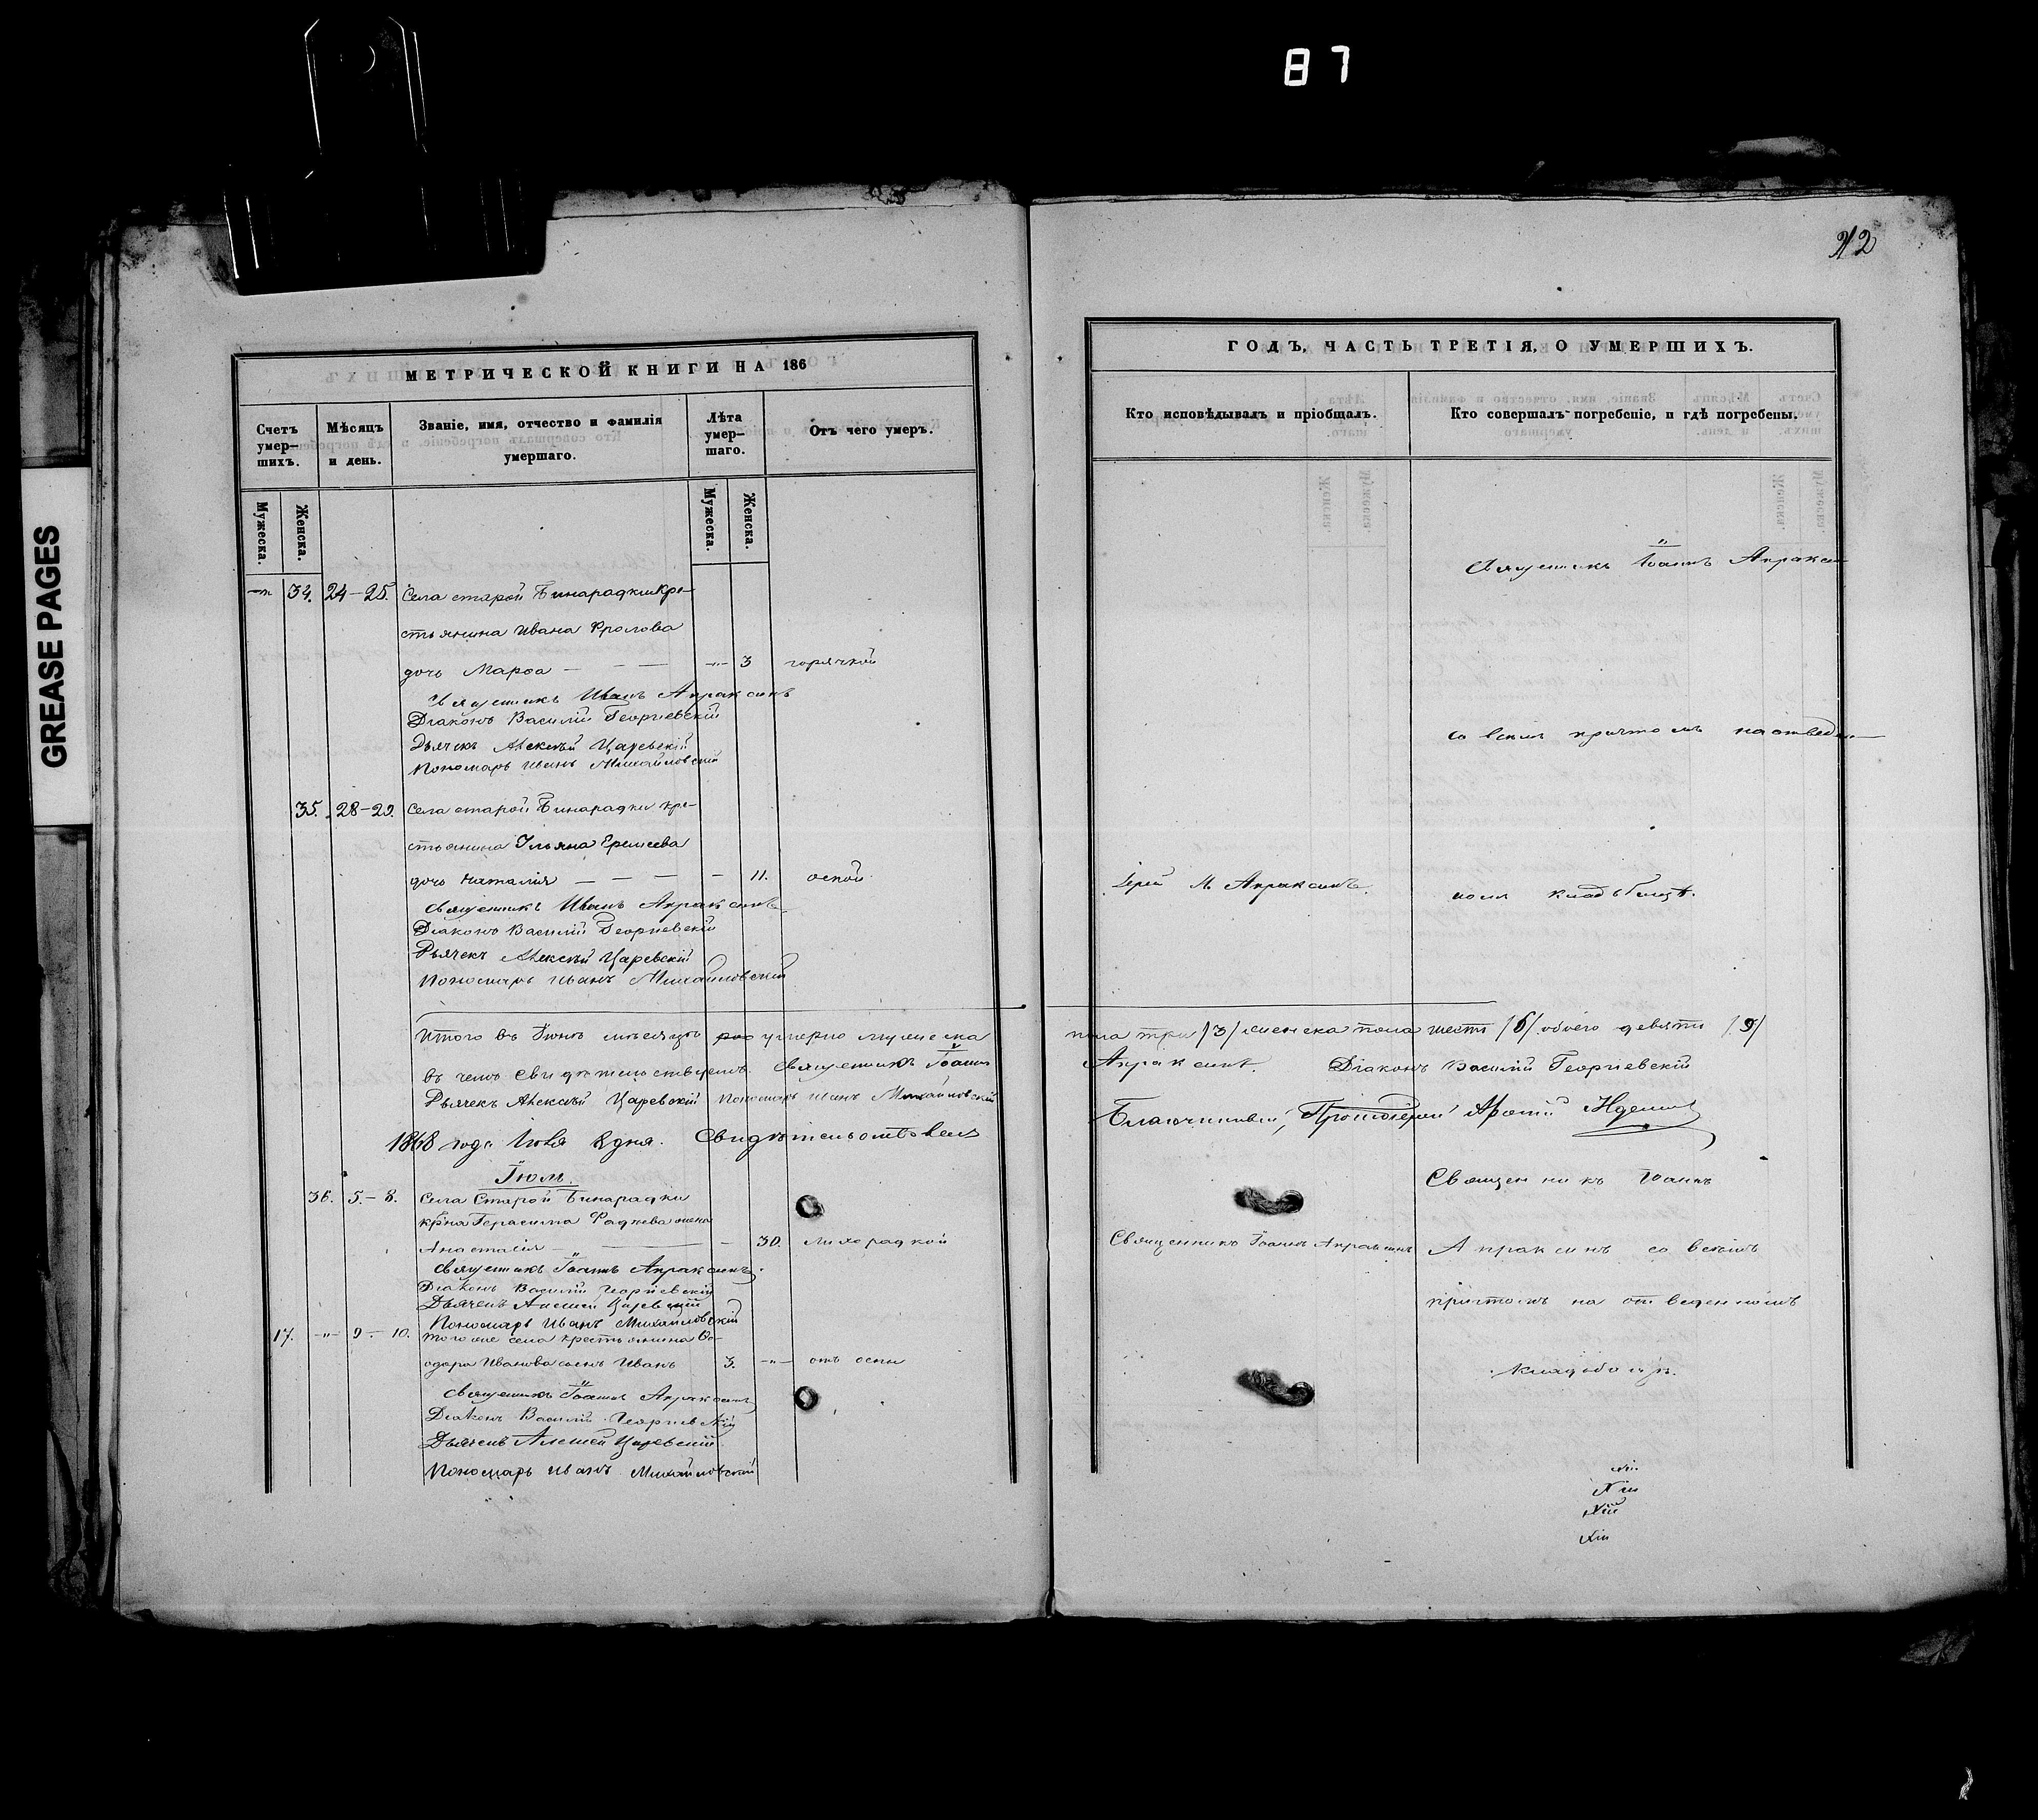 87
GREASE PAGES
42
МЕТРИЧЕСКОЙ КНИГИ НА 186
Счетъ умер-шихъ.
Мѣсяцъ и день.
Званіе, имя, отчество и фамилія умершаго.
Лѣта умер-шаго.
Отъ чего умеръ.
Мужеска.
Женска.
Мужеска.
Женска.
34. 24-25. Села старой Бинарадки кре-
стьянина Ивана Фролова
дочь Марѳа — — — 3 горячкой
Священникъ Иванъ Апраксинъ
Діаконъ Василій Георгіевскій
Дьячекъ Алексѣй Царевскій
Пономарь Иванъ Михайловскій
35. 28-29. Села старой Бинарадки кре-
стьянина Ульяна Еремеева
дочь Наталія — — — — 11. оспой
Священникъ Иванъ Апраксинъ
Діаконъ Василій Георгіевскій
Дьячекъ Алексѣй Царевскій
Пономарь Иванъ Михайловскій
Итого въ Іюнѣ мѣсяцѣ умерло мужеска
въ чемъ свидѣтельствуемъ. Священникъ Іоаннъ
Дьячекъ Алексѣй Царевскій Пономарь Иванъ Михайловскій
1868 года Іюля 8 дня. Свидѣтельствовалъ
Іюль.
36. 5.-8. Села Старой Бинарадки
кр-на Герасима жена
Анастасія — — 30. лихорадкой
Священникъ Іоаннъ Апраксинъ.
Діаконъ Василій Георгіевскій
Дьячекъ Алексей Царевскій
Пономарь Иванъ Михайловскій
17. —"— 9-10. того же села крестьянина Ѳе-
одора Иванова сынъ Иванъ 3. —"— отъ оспы
Священникъ Іоаннъ Апраксинъ
Діаконъ Василій Георгіевскій
Дьячекъ Алексей Царевскій
Пономарь Иванъ Михайловскій
ГОДЪ, ЧАСТЬ ТРЕТІЯ, О УМЕРШИХЪ.
Кто исповѣдывалъ и пріобщалъ.
Кто совершалъ погребеніе, и гдѣ погребены.
Священникъ Іоаннъ Апраксин
со всемъ причтомъ на отведен
Іерей И. Апраксинъ.
номъ кладбищѣ.
пола три /3/ женска пола шесть /6/ обоего девять /9/
Апраксинъ. Діаконъ Василій Георгіевскій
Благочинный, Протоіерей
Священникъ Іоаннъ
Священникъ Іоаннъ Апраксинъ
Апраксинъ со всѣмъ
притомъ на отведенномъ
кладбищѣ.